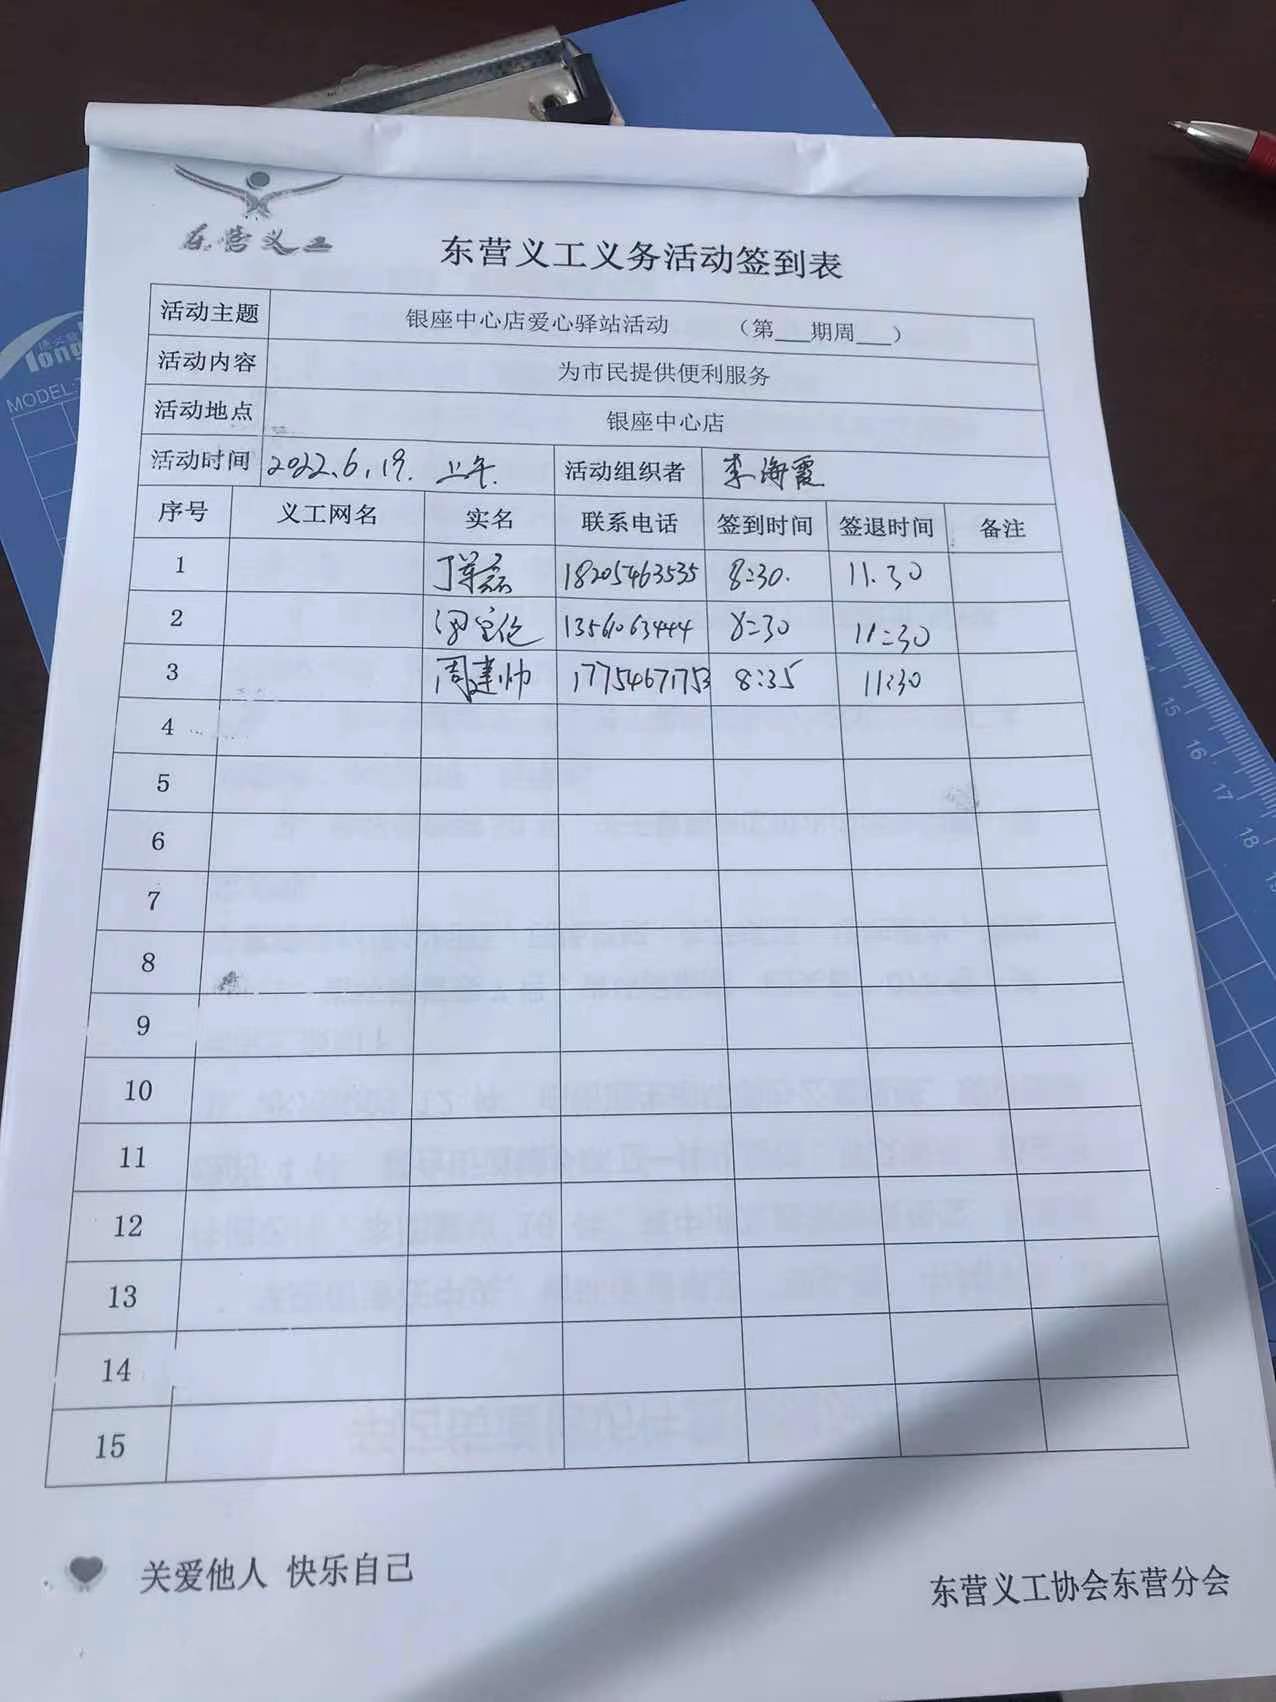 东营义工
东营义工义务活动签到表
活动主题 银座中心店爱心驿站活动 （第___期周___）
活动内容 为市民提供便利服务
活动地点 银座中心店
活动时间 2022.6.19. 上午. 活动组织者 李海霞
序号 义工网名 实名 联系电话 签到时间 签退时间 备注
1 丁军磊 18205463535 8:30. 11.30
2 宝伦 13561063444 8:30 11:30
3 周建帅 17754671753 8:35 11:30
4
5
6
7
8
9
10
11
12
13
14
15
关爱他人 快乐自己
东营义工协会东营分会
MODEL:
15
16
17
18